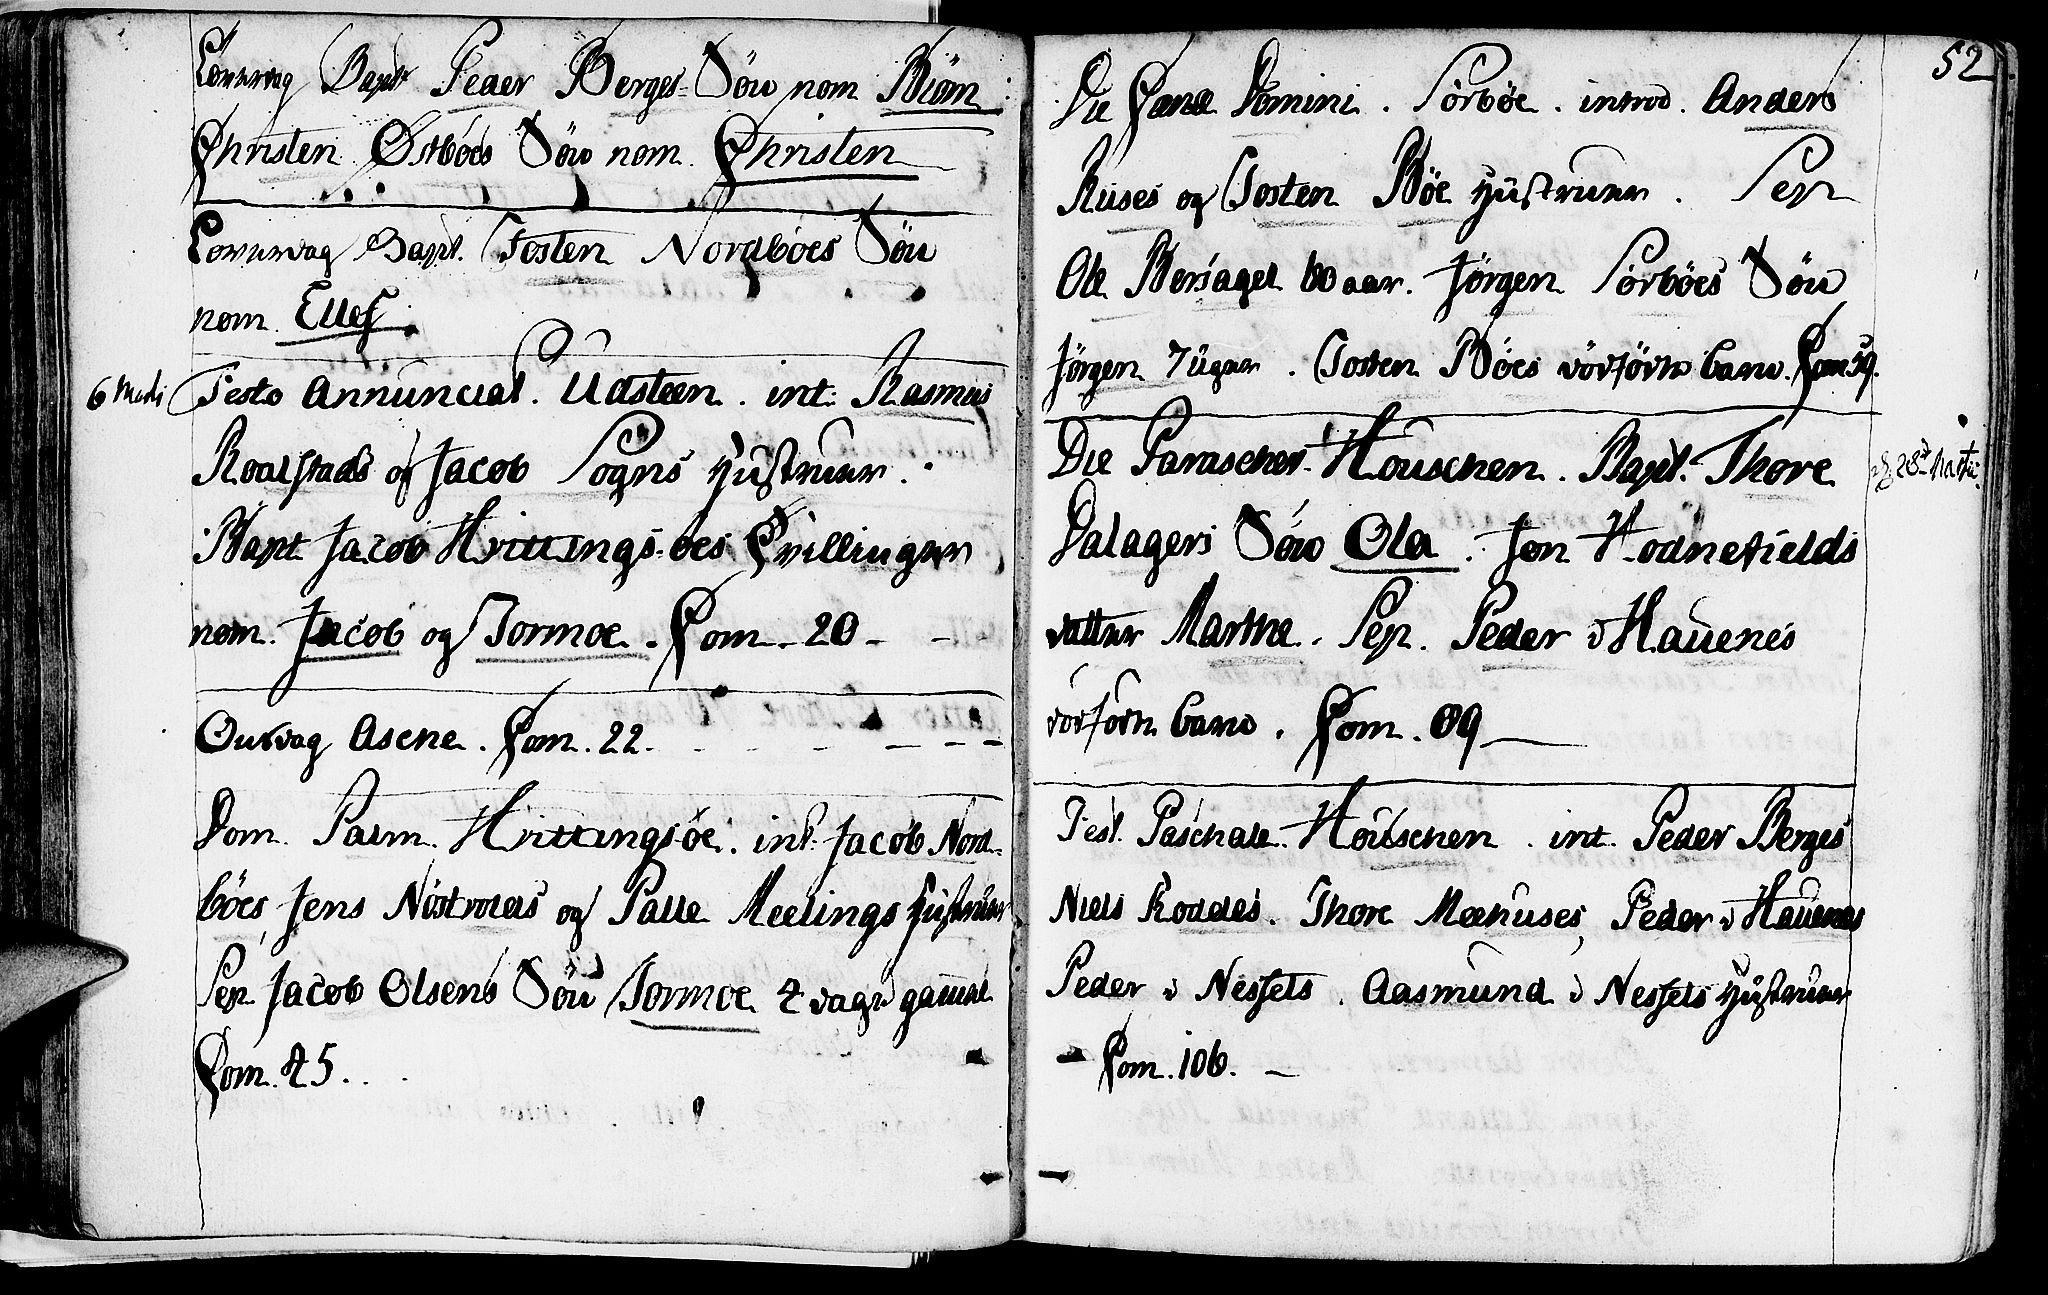 Løverdag Bapt Peder Berges Søn nom Biørn
Christen Østbøes Søn nom. Christen
Løverdag Bapt. Josten Nordbøes Søn
nom. Ellef.
6 Festo Annunciat. Udsteen. int. Rasmus
Roalstads og Jacob Sogns Hustruer.
Bapt Jacob Hvittingsøes Tvillinger
nom. Jacob og Tormoe. Com. 20
Onsdag Asene. Com. 22.
Dom. Palm. Hvittingsøe. int. Jacob Nord-
bøes, Jens Nøstvolds og Palle Meelings Hustruer
Sep. Jacob Olsens Søn Tormoe 4 dage gammel
Com. 45.
52
Die Cænæ Domini. Sørbøe. introd. Anders
Ruses og Josten Bøe Hustruer. Sep
Ole Bersagel 60 aar. Jørgen Sørbøes Søn
Jørgen 7 Uger. Josten Bøes dødfødte barn. Com 59.
Die Parascher Houschen. Bapt. Thore
28 Martii
Dalagers Søn Ola. Jon Hodnefields
datter Marthe. Sep. Peder i Hauenes
dødfødte barn. Com. 89
Fest. Paschale. Houschen. int. Peder Berges
Niels Roddes. Thore Meehuses, Peder i Hauenes
Peder i Nessets. Aasmund i Nessets Hustruer
Com. 106.